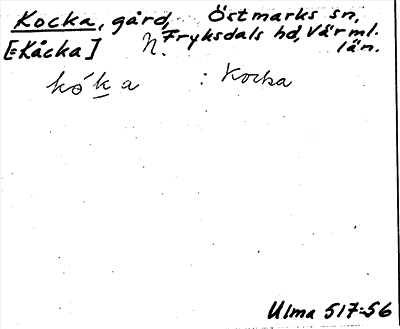 Kocka, gård, Östmarks sn,
[Kåcka] N. Fryksdals hd, Värml.
län.
kóka : Kocka
Ulma 517:56